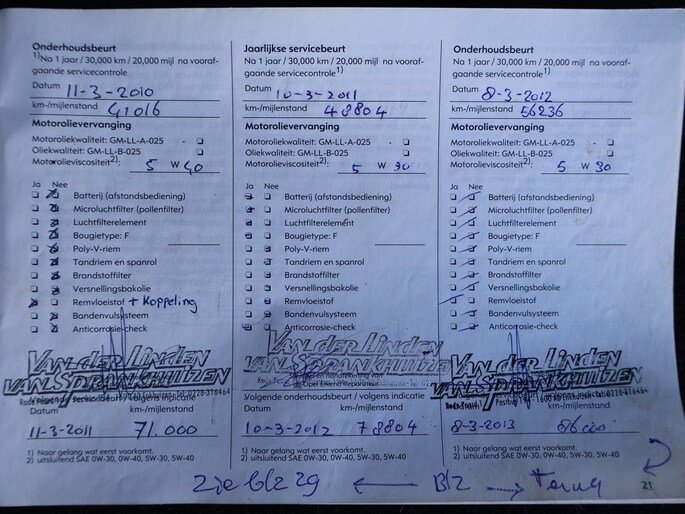 Onderhoudsbeurt
1) Na 1 jaar / 30,000 km / 20,000 mijl na vooraf-
gaande servicecontrole
Datum 11-3-2010
km-/mijlenstand 41016
Motorolievervanging
Motoroliekwaliteit: GM-LL-A-025 -
Oliekwaliteit: GM-LL-B-025
Motorolieviscositeit2): 5 W 40
Ja Nee
Batterij (afstandsbediening)
Microluchtfilter (pollenfilter)
Luchtfilterelement
Bougietype: F
Poly-V-riem
Tandriem en spanrol
Brandstoffilter
Versnellingsbakolie
Remvloeistof + Koppeling
Bandenvulsysteem
Anticorrosie-check
Van der Linden
van Sprankhuizen
Volgende onderhoudsbeurt / volgens indicatie
Datum km-/mijlenstand
11-3-2011 71.000
1) Naar gelang wat eerst voorkomt.
2) uitsluitend SAE 0W-30, 0W-40, 5W-30, 5W-40
Jaarlijkse servicebeurt
Na 1 jaar / 30,000 km / 20,000 mijl na vooraf-
gaande servicecontrole1)
Datum 10-3-2011
km-/mijlenstand 48804
Motorolievervanging
Motoroliekwaliteit: GM-LL-A-025 -
Oliekwaliteit: GM-LL-B-025
Motorolieviscositeit2): 5 W 30
Ja Nee
Batterij (afstandsbediening)
Microluchtfilter (pollenfilter)
Luchtfilterelement
Bougietype: F
Poly-V-riem
Tandriem en spanrol
Brandstoffilter
Versnellingsbakolie
Remvloeistof
Bandenvulsysteem
Anticorrosie-check
Van der Linden
van Sprankhuizen
Opel Erkend Reparateur
Volgende onderhoudsbeurt / volgens indicatie
Datum km-/mijlenstand
10-3-2012 78804
1) Naar gelang wat eerst voorkomt.
2) uitsluitend SAE 0W-30, 0W-40, 5W-30, 5W-40
Onderhoudsbeurt
Na 1 jaar / 30,000 km / 20,000 mijl na vooraf-
gaande servicecontrole1)
Datum 8-3-2012
km-/mijlenstand 56236
Motorolievervanging
Motoroliekwaliteit: GM-LL-A-025 -
Oliekwaliteit: GM-LL-B-025
Motorolieviscositeit2): 5 W 30
Ja Nee
Batterij (afstandsbediening)
Microluchtfilter (pollenfilter)
Luchtfilterelement
Bougietype: F
Poly-V-riem
Tandriem en spanrol
Brandstoffilter
Versnellingsbakolie
Remvloeistof
Bandenvulsysteem
Anticorrosie-check
Van der Linden
van Sprankhuizen
Datum km-/mijlenstand
8-3-2013
1) Naar gelang wat eerst voorkomt.
2) uitsluitend SAE 0W-30, 0W-40, 5W-30, 5W-40
Zie blz 29 ← Blz → terug
21